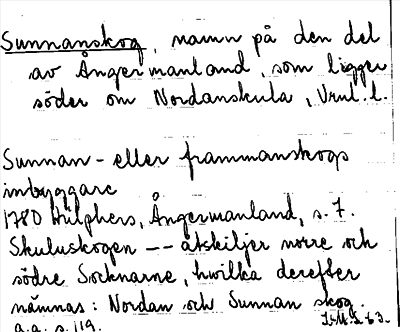 Sunnanskog, namn på den del
av Ångermanland, som ligger
söder om Nordanskula, Vrml. l.
Sunnan- eller frammanskogs
inbyggare
1780 Hülphers, Ångermanland, s. 7.
Skuluskogen -- åtskiljer norre och
södre Socknarne, hwilka derefter
nämnas: Nordan och Sunnan skog.
a.a. s. 119.